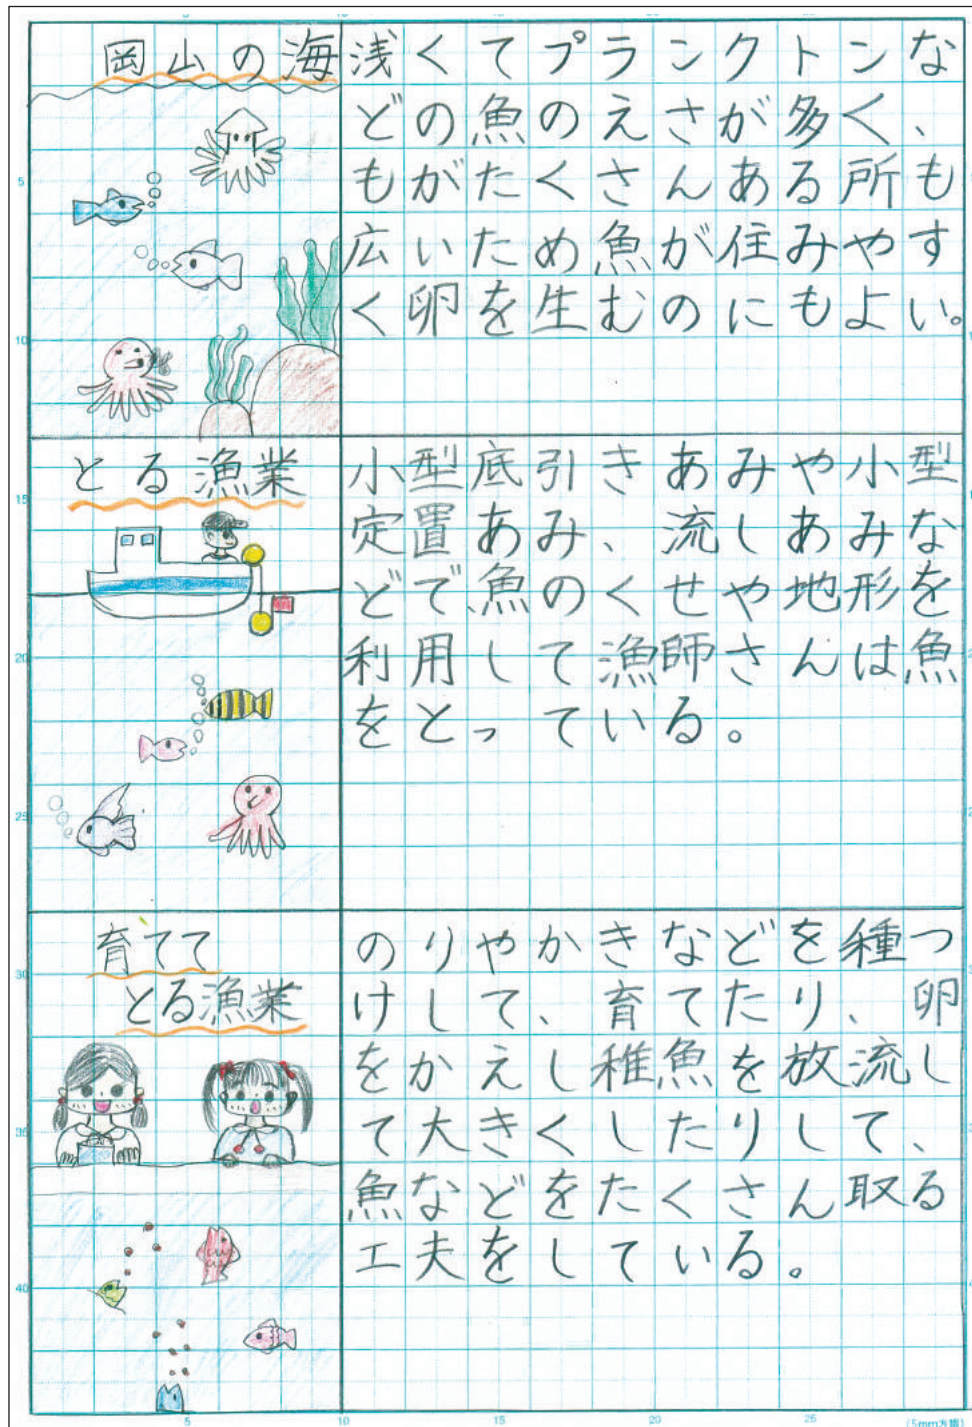 岡山の海
浅くてプランクトンな
どの魚のえさが多く、
もがたくさんある所も
広いため魚が住みやす
く卵を生むのにもよい。
とる漁業
小型底引きあみや小型
定置あみ、流しあみな
どで、魚のくせや地形を
利用して漁師さんは魚
をとっている。
育てて
とる漁業
のりやかきなどを種つ
けして、育てたり、卵
をかえし稚魚を放流し
て大きくしたりして、
魚などをたくさん取る
工夫をしている。
5
10
15
20
25
30
35
40
5
10
15
20
26
(5mm方眼)